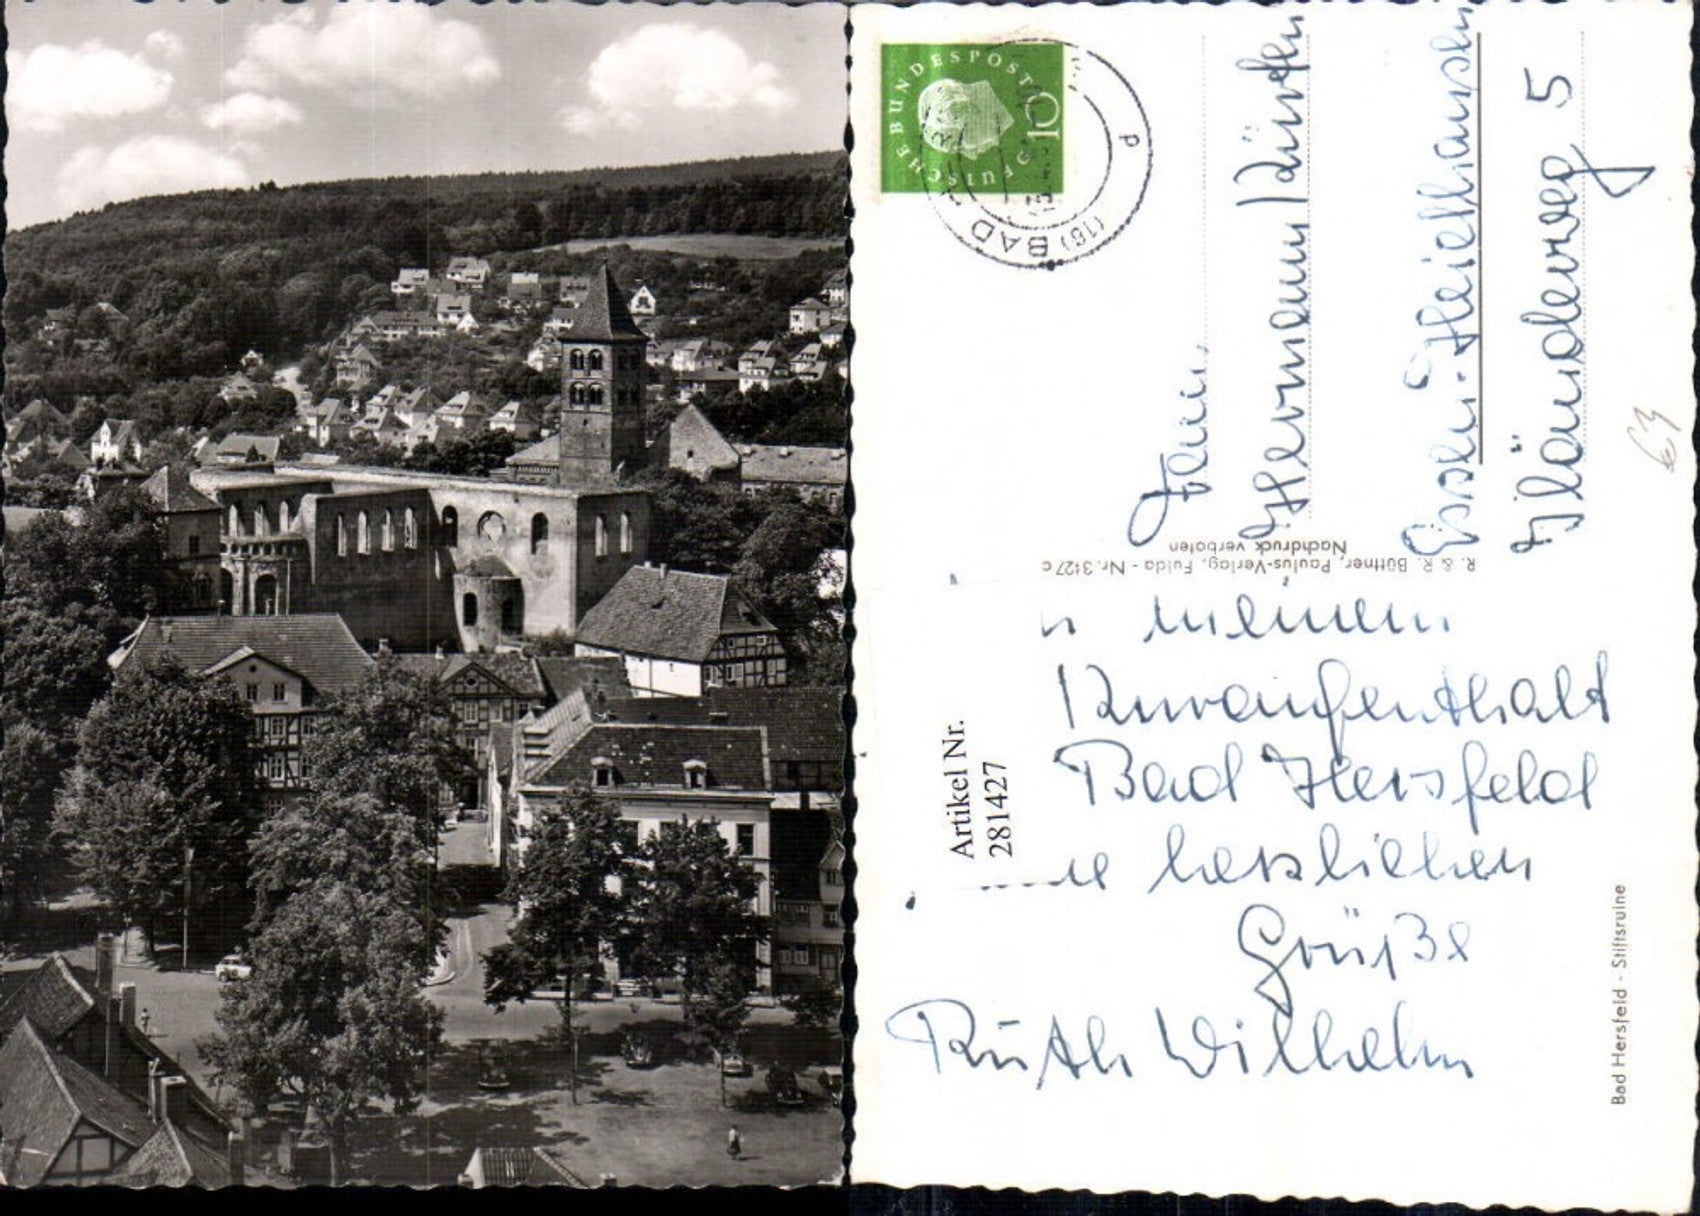 DEUTSCHE BUNDESPOST
10
(16) BAD
p
Artikel Nr.
281427
meinem
Kuraufenthalt
Bad Hersfeld
herzlichen
Grüße
Ruth Wilhelm
R. & R. Büttner, Paulus-Verlag, Fulda - Nr. 3127c
Nachdruck verboten
Hermann
Essen-Heidhausen
5
63
Bad Hersfeld - Stiftsruine